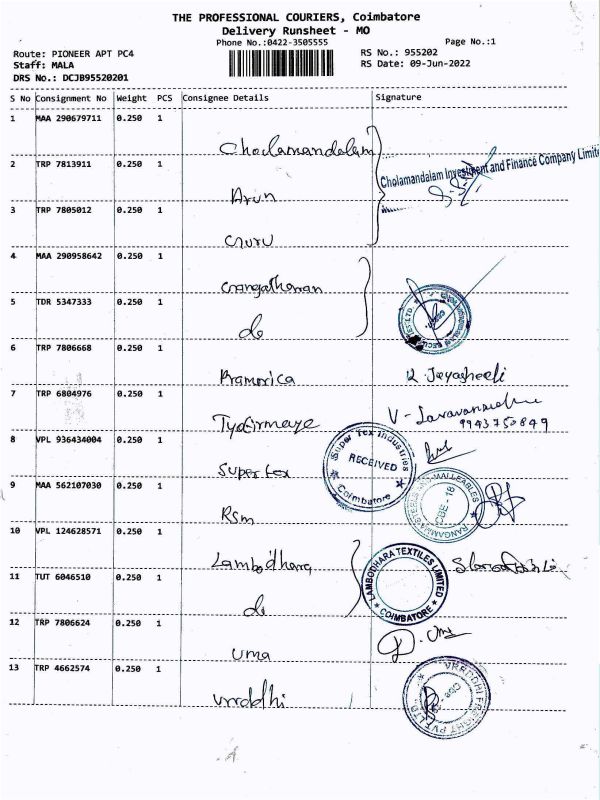 THE PROFESSIONAL COURIERS, Coimbatore
Delivery Runsheet - MO
Phone No.:0422-3505555
Page No.:1
Route: PIONEER APT PC4
RS No.: 955202
Staff: MALA
RS Date: 09-Jun-2022
DRS No.: DCJB95520201
S No Consignment No Weight PCS Consignee Details Signature
1 MAA 290679711 0.250 1
Cholamandalam
Cholamandalam Investment and Finance Company Limite
2 TRP 7813911 0.250 1
Arun
3 TRP 7805012 0.250 1
Guru
4 MAA 290958642 0.250 1
5 TDR 5347333 0.250 1
do
6 TRP 7806668 0.250 1
Pramerica
7 TRP 6804976 0.250 1
9943750849
8 VPL 936434004 0.250 1
Supertex
Super Tex Industries
RECEIVED
Coimbatore
9 MAA 562107030 0.250 1
Rsm
CBE-18
10 VPL 124628571 0.250 1
Lambodhara
LAMBODHARA TEXTILES LIMITED
COIMBATORE
11 TUT 6046510 0.250 1
do
12 TRP 7806624 0.250 1
uma
13 TRP 4662574 0.250 1
vrddhi
VRRDDHI FREIGHT PVT LTD.
Cbe